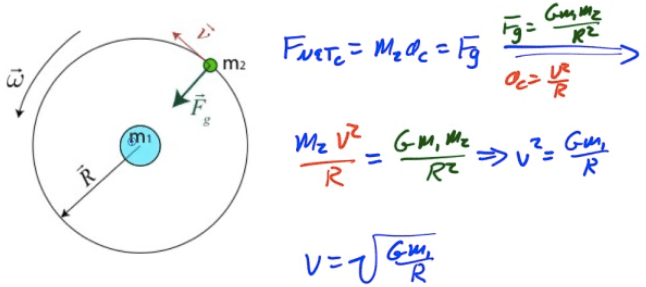 v⃗
m₂
ω⃗
F⃗g
m₁
R⃗
F_NETc = m₂a_c = Fg
Fg = Gm₁m₂/R²
a_c = v²/R
m₂v²/R = Gm₁m₂/R² ⇒ v² = Gm₁/R
v = √(Gm₁/R)